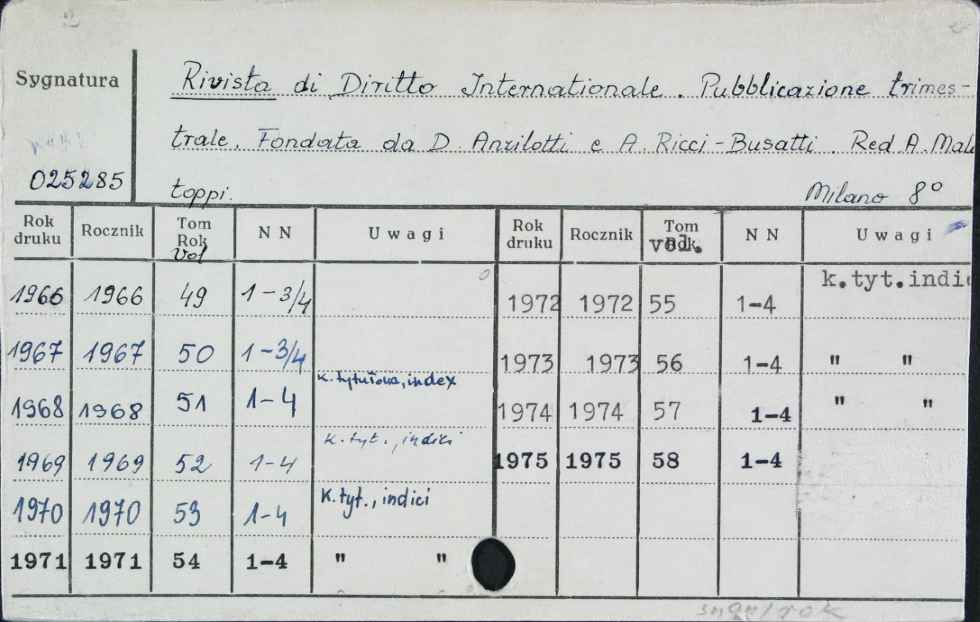 Sygnatura
025285
Rivista di Diritto Internationale. Pubblicazione trimes-
trale. Fondata da D. Anzilotti e A. Ricci-Busatti. Red A. Mala
toppi. Milano 8°
Rok druku Rocznik Tom Rok Vol NN Uwagi Rok druku Rocznik Tom Rok vol. NN Uwagi
1966 1966 49 1-3/4 1972 1972 55 1-4 k.tyt.indic
1967 1967 50 1-3/4 1973 1973 56 1-4 " "
1968 1968 51 1-4 k.tytułowa, index 1974 1974 57 1-4 " "
1969 1969 52 1-4 k.tyt., indici 1975 1975 58 1-4
1970 1970 53 1-4 k.tyt., indici
1971 1971 54 1-4 " "